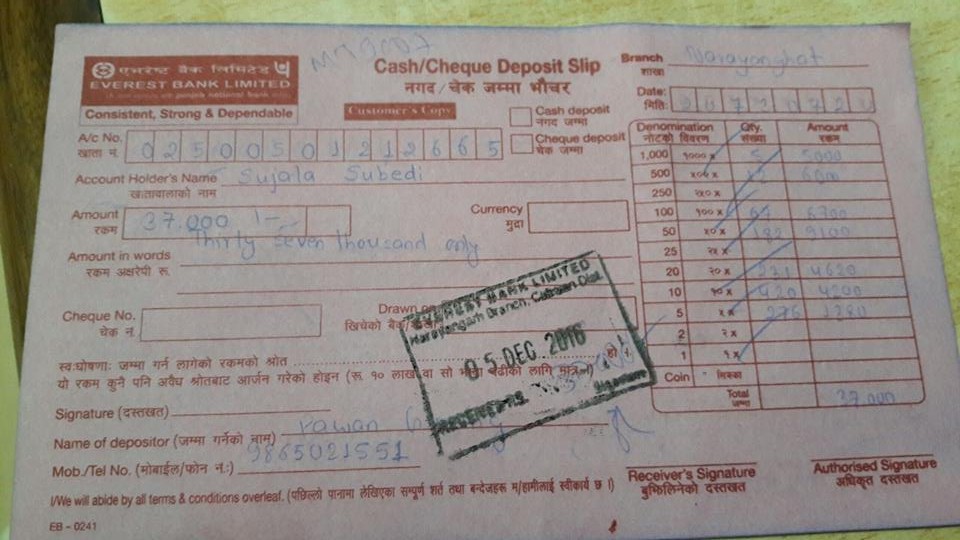 एभरेष्ट बैंक लिमिटेड
EVEREST BANK LIMITED
Consistent, Strong & Dependable
Cash/Cheque Deposit Slip
नगद/चेक जम्मा भौचर
Customer's Copy
Cash deposit
नगद जम्मा
Cheque deposit
चेक जम्मा
Branch Narayanghat
शाखा
Date:
मिति:
A/c No. 02500501212665
खाता नं.
Account Holder's Name Sujala Subedi
खातावालाको नाम
Amount 37.000/-
रकम
Currency
मुद्रा
Thirty Seven thousand only
Amount in words
रकम अक्षरेपी रू.
Cheque No.
चेक नं.
Drawn on
खिचेको बैंक
Denomination Qty. Amount
नोटको विवरण संख्या रकम
1,000 १००० x 5 5000
500 ५०० x 12 6000
250 २५० x
100 १०० x 67 6700
50 ५० x 182 9100
25 २५ x
20 २० x 231 4620
10 १० x 420 4200
5 ५ x 276 1380
2 २ x
1 १ x
Coin सिक्का
Total 37.000
जम्मा
EVEREST BANK LIMITED
Narayangarh Branch, Chitwan Dist.
05 DEC 2016
स्व:घोषणा: जम्मा गर्न लागेको रकमको श्रोत हो ।
यो रकम कुनै पनि अवैध श्रोतबाट आर्जन गरेको होइन (रू १० लाख वा सो भन्दा बढीको लागि मात्र)
Signature (दस्तखत)
Name of depositor (जम्मा गर्नेको नाम)
Mob./Tel No. (मोबाईल/फोन नं.:) 9865021551
I/We will abide by all terms & conditions overleaf. (पछिल्लो पानामा लेखिएका सम्पूर्ण शर्त तथा बन्देजहरू म/हामीलाई स्वीकार्य छ ।)
Receiver's Signature
बुझिलिनेको दस्तखत
Authorised Signature
अधिकृत दस्तखत
EB - 0241